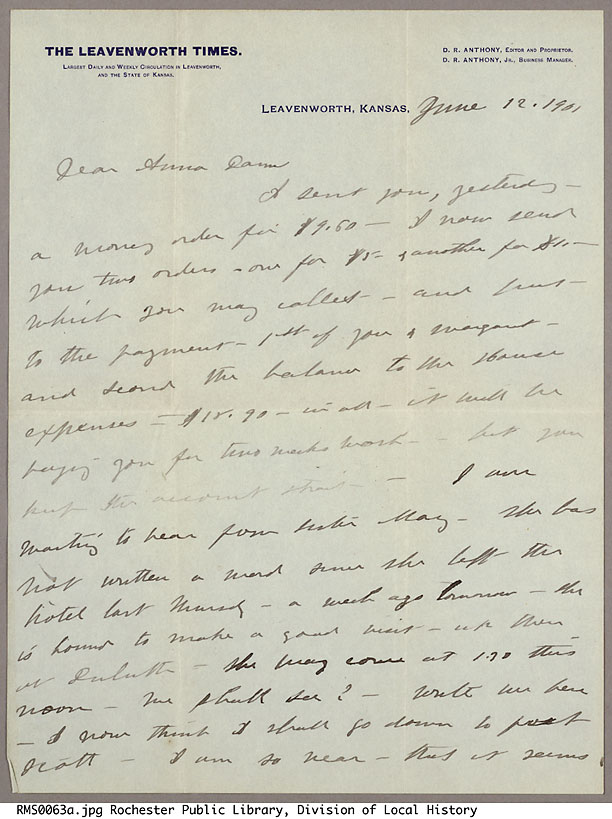 THE LEAVENWORTH TIMES.
LARGEST DAILY AND WEEKLY CIRCULATION IN LEAVENWORTH,
AND THE STATE OF KANSAS.
D. R. ANTHONY, EDITOR AND PROPRIETOR.
D. R. ANTHONY, JR., BUSINESS MANAGER.
LEAVENWORTH, KANSAS, June 12. 1901
Dear Anna Dann
I sent you, yesterday —
a money order for $9.60 — I now send
you two orders - one for $5 - & another for $1. —
which you may collect — and put —
to the payment — 1st of you & Margaret —
and second the balance to the House
expenses — — in all — it will be
paying you for two weeks work — but you
keep the account strait — — I am
waiting to hear from sister Mary — she has
not written a word since she left the
hotel last Thursdy — a week ago tomorrow — she
is bound to make a good visit — up there
at Duluth — she may come at 1.20 this
noon — we shall see ? — Write me here
— I now think I shall go down to Fort
Scott — I am so near — that it seems
RMS0063a.jpg Rochester Public Library, Division of Local History